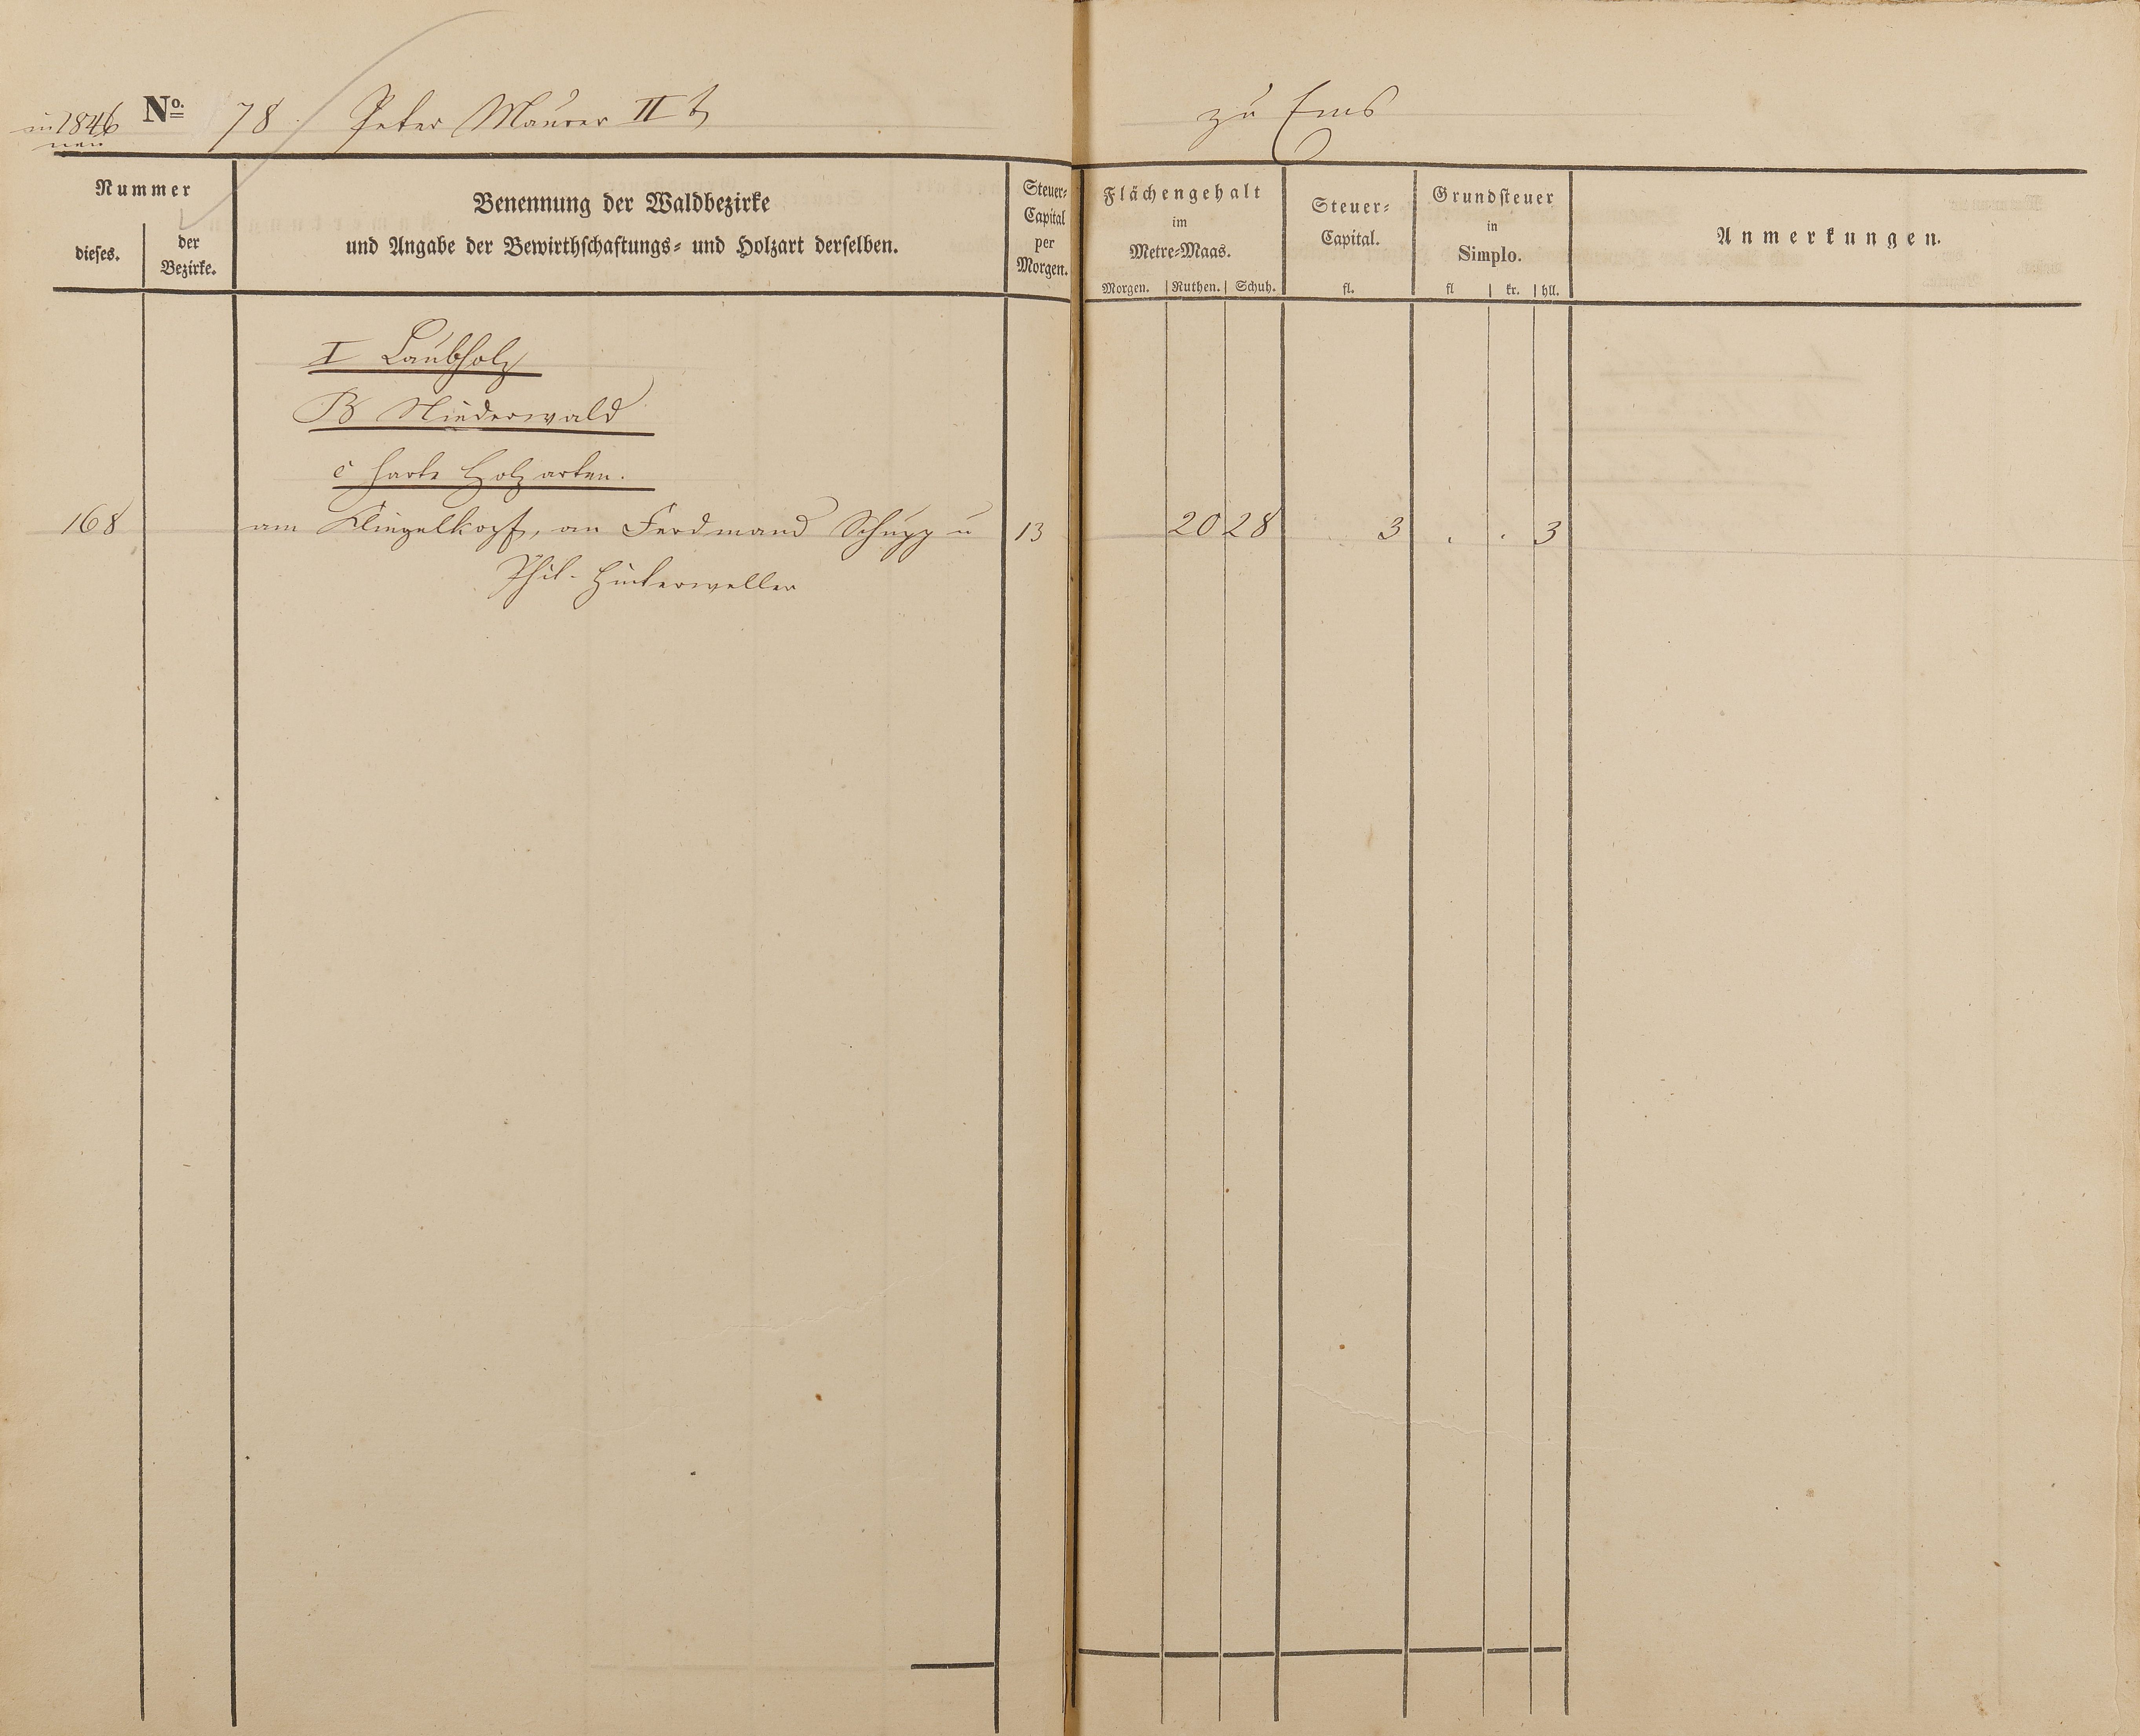 in 1846 No. 78. Peter Maurer II
neu
zu Ems
Nummer
dieses.
der
Bezirke.
Benennung der Waldbezirke
und Angabe der Bewirthschaftungs- und Holzart derselben.
Steuer-
Capital
per
Morgen.
Flächengehalt
im
Metre-Maas.
Morgen. Ruthen. Schuh.
Steuer-
Capital.
fl.
Grundsteuer
in
Simplo.
fl kr. hll.
Anmerkungen.
I Laubholz
B Niederwald
c harte Holzarten.
168 am Klingelkopf, an Ferdinand Schupp u 13 20 28 3 . . 3
Phil. Hinterweller